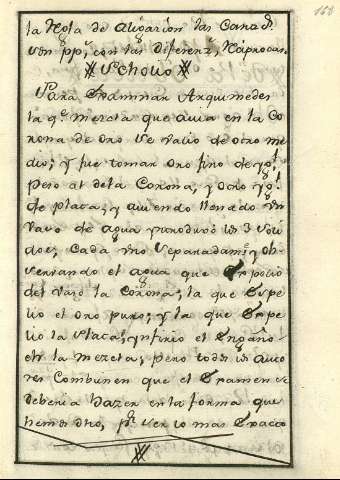 160
la Regla de aligacion las Canti.s
van pp.s con las Diferen.s Reciprocas.
Scholio
Para Examinar Arquimedes
la q.e mezcla que avia en la Co
rona de oro se valio de otro me
dio; y fue tomar oro fino de ygl.
peso al de la Corona, y otro ygl.
de plata; y aviendo llenado un
vaso de agua yntrodujo los 3 soli
dos, cada uno separadam.te y ob-
servando el agua que Expelio
del vaso la Corona; la que Expe
lio el oro puro; y la que Expe
lio la Plata; ynfirio el Engaño
de la mezcla; pero todos los auto
res Combienen que el Examen se
deberia hazer en la forma que
hemos dho, p.r ser lo mas Exacto